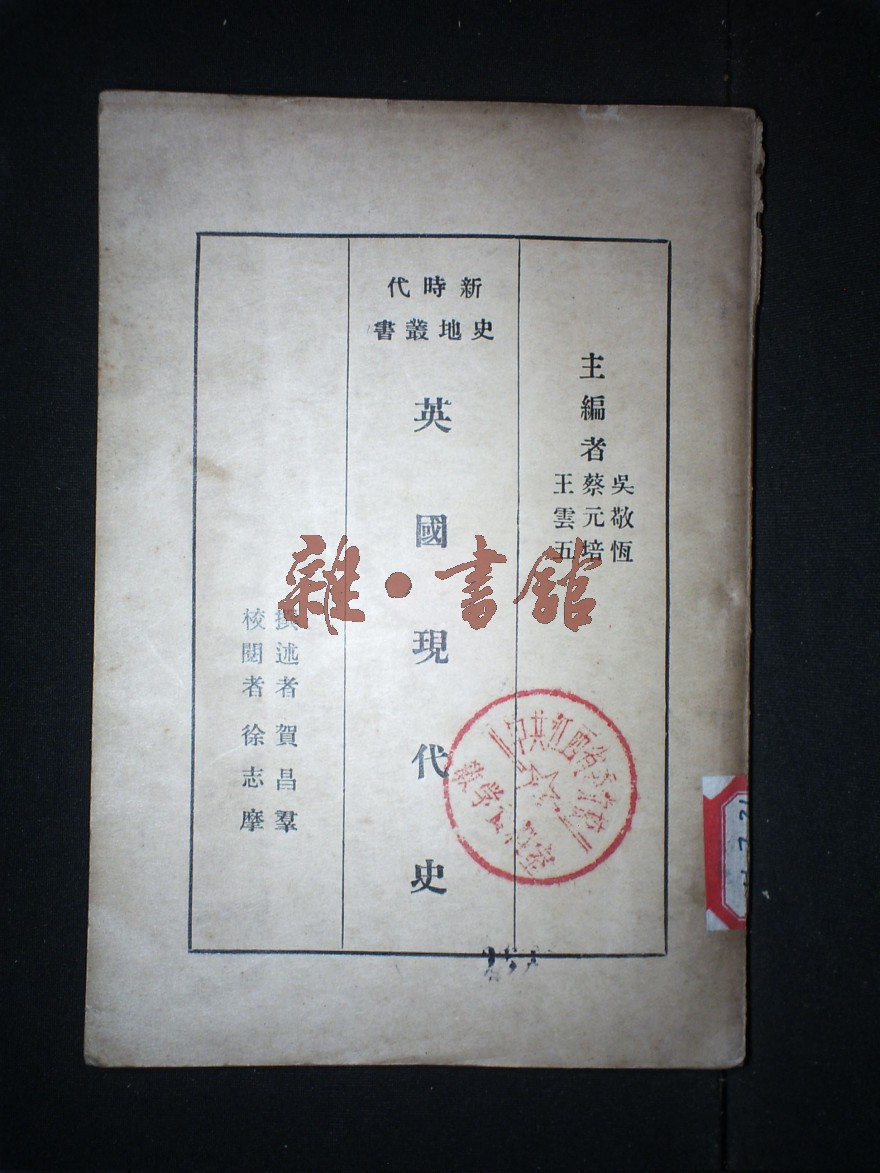 主編者
吳敬恆
蔡元培
王雲五
新時代
史地叢書
英國現代史
撰述者 賀昌羣
校閱者 徐志摩
雜·書館
中共江西省委党校